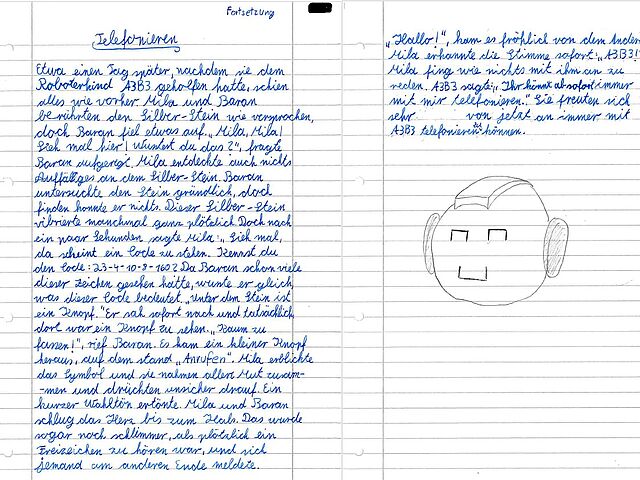 Fortsetzung
Telefonieren
Etwa einen Tag später, nachdem sie dem
Roboterkind A3B3 geholfen hatte, schien
alles wie vorher. Mila und Baran
berührten den Silber-Stein wie versprochen,
doch Baran fiel etwas auf. „Mila, Mila!
Sieh mal hier! Wunderst du das?", fragte
Baran aufgeregt. Mila entdeckte auch nichts
Auffälliges an dem Silber-Stein. Baran
untersuchte den Stein gründlich, doch
finden konnte er nichts. Dieser Silber-Stein
vibrierte manchmal ganz plötzlich. Doch nach
ein paar Sekunden sagte Mila: „Sieh mal,
da scheint ein Code zu stehen. Kennst du
den Code: 23-4-10-8-160? Da Baran schon viele
dieser Zeichen gesehen hatte, wusste er gleich
was dieser Code bedeutet. „Unter dem Stein ist
ein Knopf." Er sah sofort nach und tatsächlich,
dort war ein Knopf zu sehen. „Kaum zu
fassen!", rief Baran. Es kam ein kleiner Knopf
heraus, auf dem stand „Anrufen". Mila erblickte
das Symbol und sie nahmen allen Mut zusam-
-men und drückten unsicher drauf. Ein
kurzer Wahltön ertönte. Mila und Baran
schlug das Herz bis zum Hals. Das wurde
sogar noch schlimmer, als plötzlich ein
Freizeichen zu hören war, und sich
jemand am anderen Ende meldete.
„Hallo!", kam es fröhlich von dem Ander
Mila erkannte die Stimme sofort: „A3B3!"
Mila fing wie nichts mit ihm an zu
reden. A3B3 sagte: „Ihr könnt ab sofort immer
mit mir telefonieren." Sie freuten sich
sehr von jetzt an immer mit
A3B3 telefonieren können.